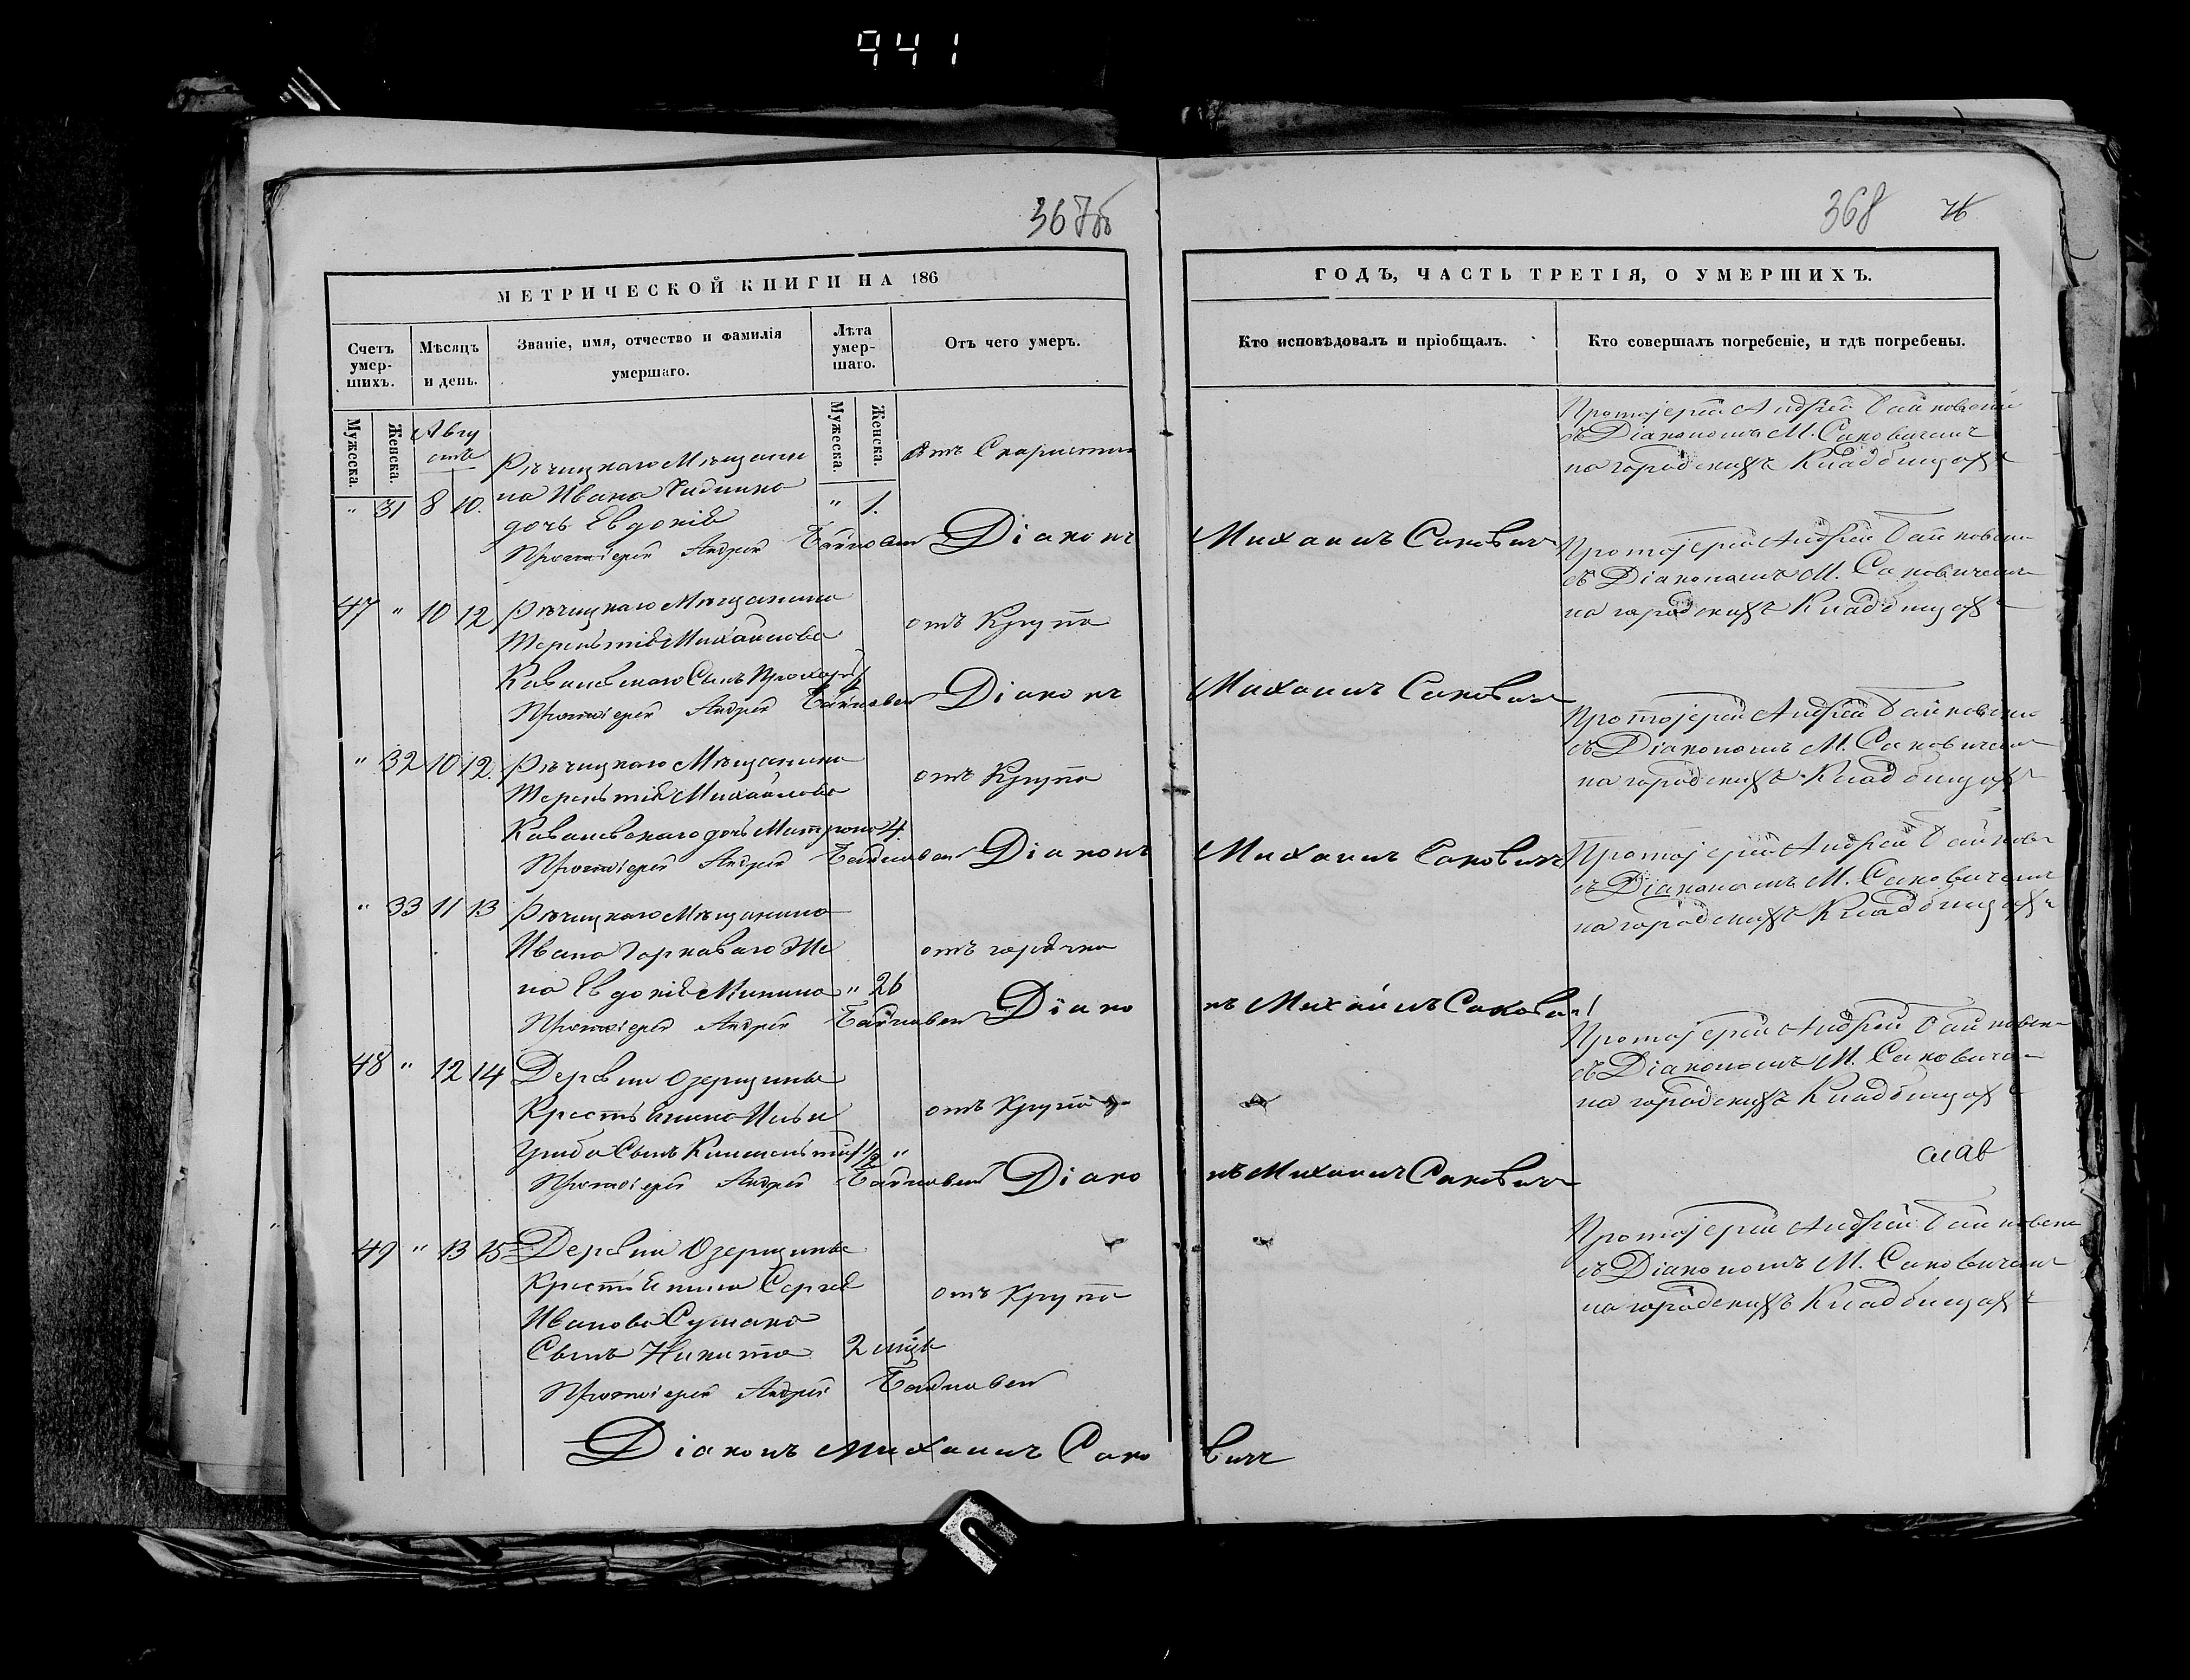 941
367об
368 76
МЕТРИЧЕСКОЙ КНИГИ НА 186
ГОДЪ, ЧАСТЬ ТРЕТІЯ, О УМЕРШИХЪ.
Счетъ умер-
шихъ.
Мѣсяцъ
и день.
Званіе, имя, отчество и фамилія
умершаго.
Лѣта
умер-
шаго.
Отъ чего умеръ.
Кто исповѣдовалъ и пріобщалъ.
Кто совершалъ погребеніе, и гдѣ погребены.
Мужеска.
Женска.
Авгу
стъ
Мужеска.
Женска.
Рѣчицкаго Мѣщани
на Ивана
" 31 8 10.
дочь Евдокія
" 1.
отъ Скарлатины
Протоіерей Андрей
Діаконъ Михаилъ Саковичъ
Протоіерей Андрей
съ Діакономъ М. Саковичемъ
на городскихъ Кладбищахъ
47 " 10 12 Рѣчицкаго Мѣщанина
Терентія Михайлова
Ковалевскаго Сынъ Прохоръ 4
отъ Крупа
Протоіерей Андрей
Діаконъ Михаилъ Саковичъ
Протоіерей Андрей
съ Діакономъ М. Саковичемъ
на городскихъ Кладбищахъ
" 32 10 12. Рѣчицкаго Мѣщанина
Терентія Михайлова
Ковалевскаго дочь Матрона 4.
отъ Крупа
Протоіерей Андрей
Діаконъ Михаилъ Саковичъ
Протоіерей Андрей
съ Діакономъ М. Саковичемъ
на городскихъ Кладбищахъ
" 33 11 13 Рѣчицкаго Мѣщанина
Ивана Горкаваго Же
на Евдокія Минина " 26
отъ горячки
Протоіерей Андрей
Діаконъ Михаилъ Саковичъ
Протоіерей Андрей
съ Діакономъ М. Саковичемъ
на городскихъ Кладбищахъ
48 " 12 14 Деревни Озерщины
Крестьянина Ильи
Сынъ Климентій 1/2 "
отъ Крупа
Протоіерей Андрей
Діаконъ Михаилъ Саковичъ
Протоіерей Андрей
съ Діакономъ М. Саковичемъ
на городскихъ Кладбищахъ
49 " 13 15 Деревни Озерщины
Крестьянина Сергѣя
Иванова
Сынъ Никита 2 мѣс.
отъ Крупа
Протоіерей Андрей
Діаконъ Михаилъ Саковичъ
Протоіерей Андрей
съ Діакономъ М. Саковичемъ
на городскихъ Кладбищахъ